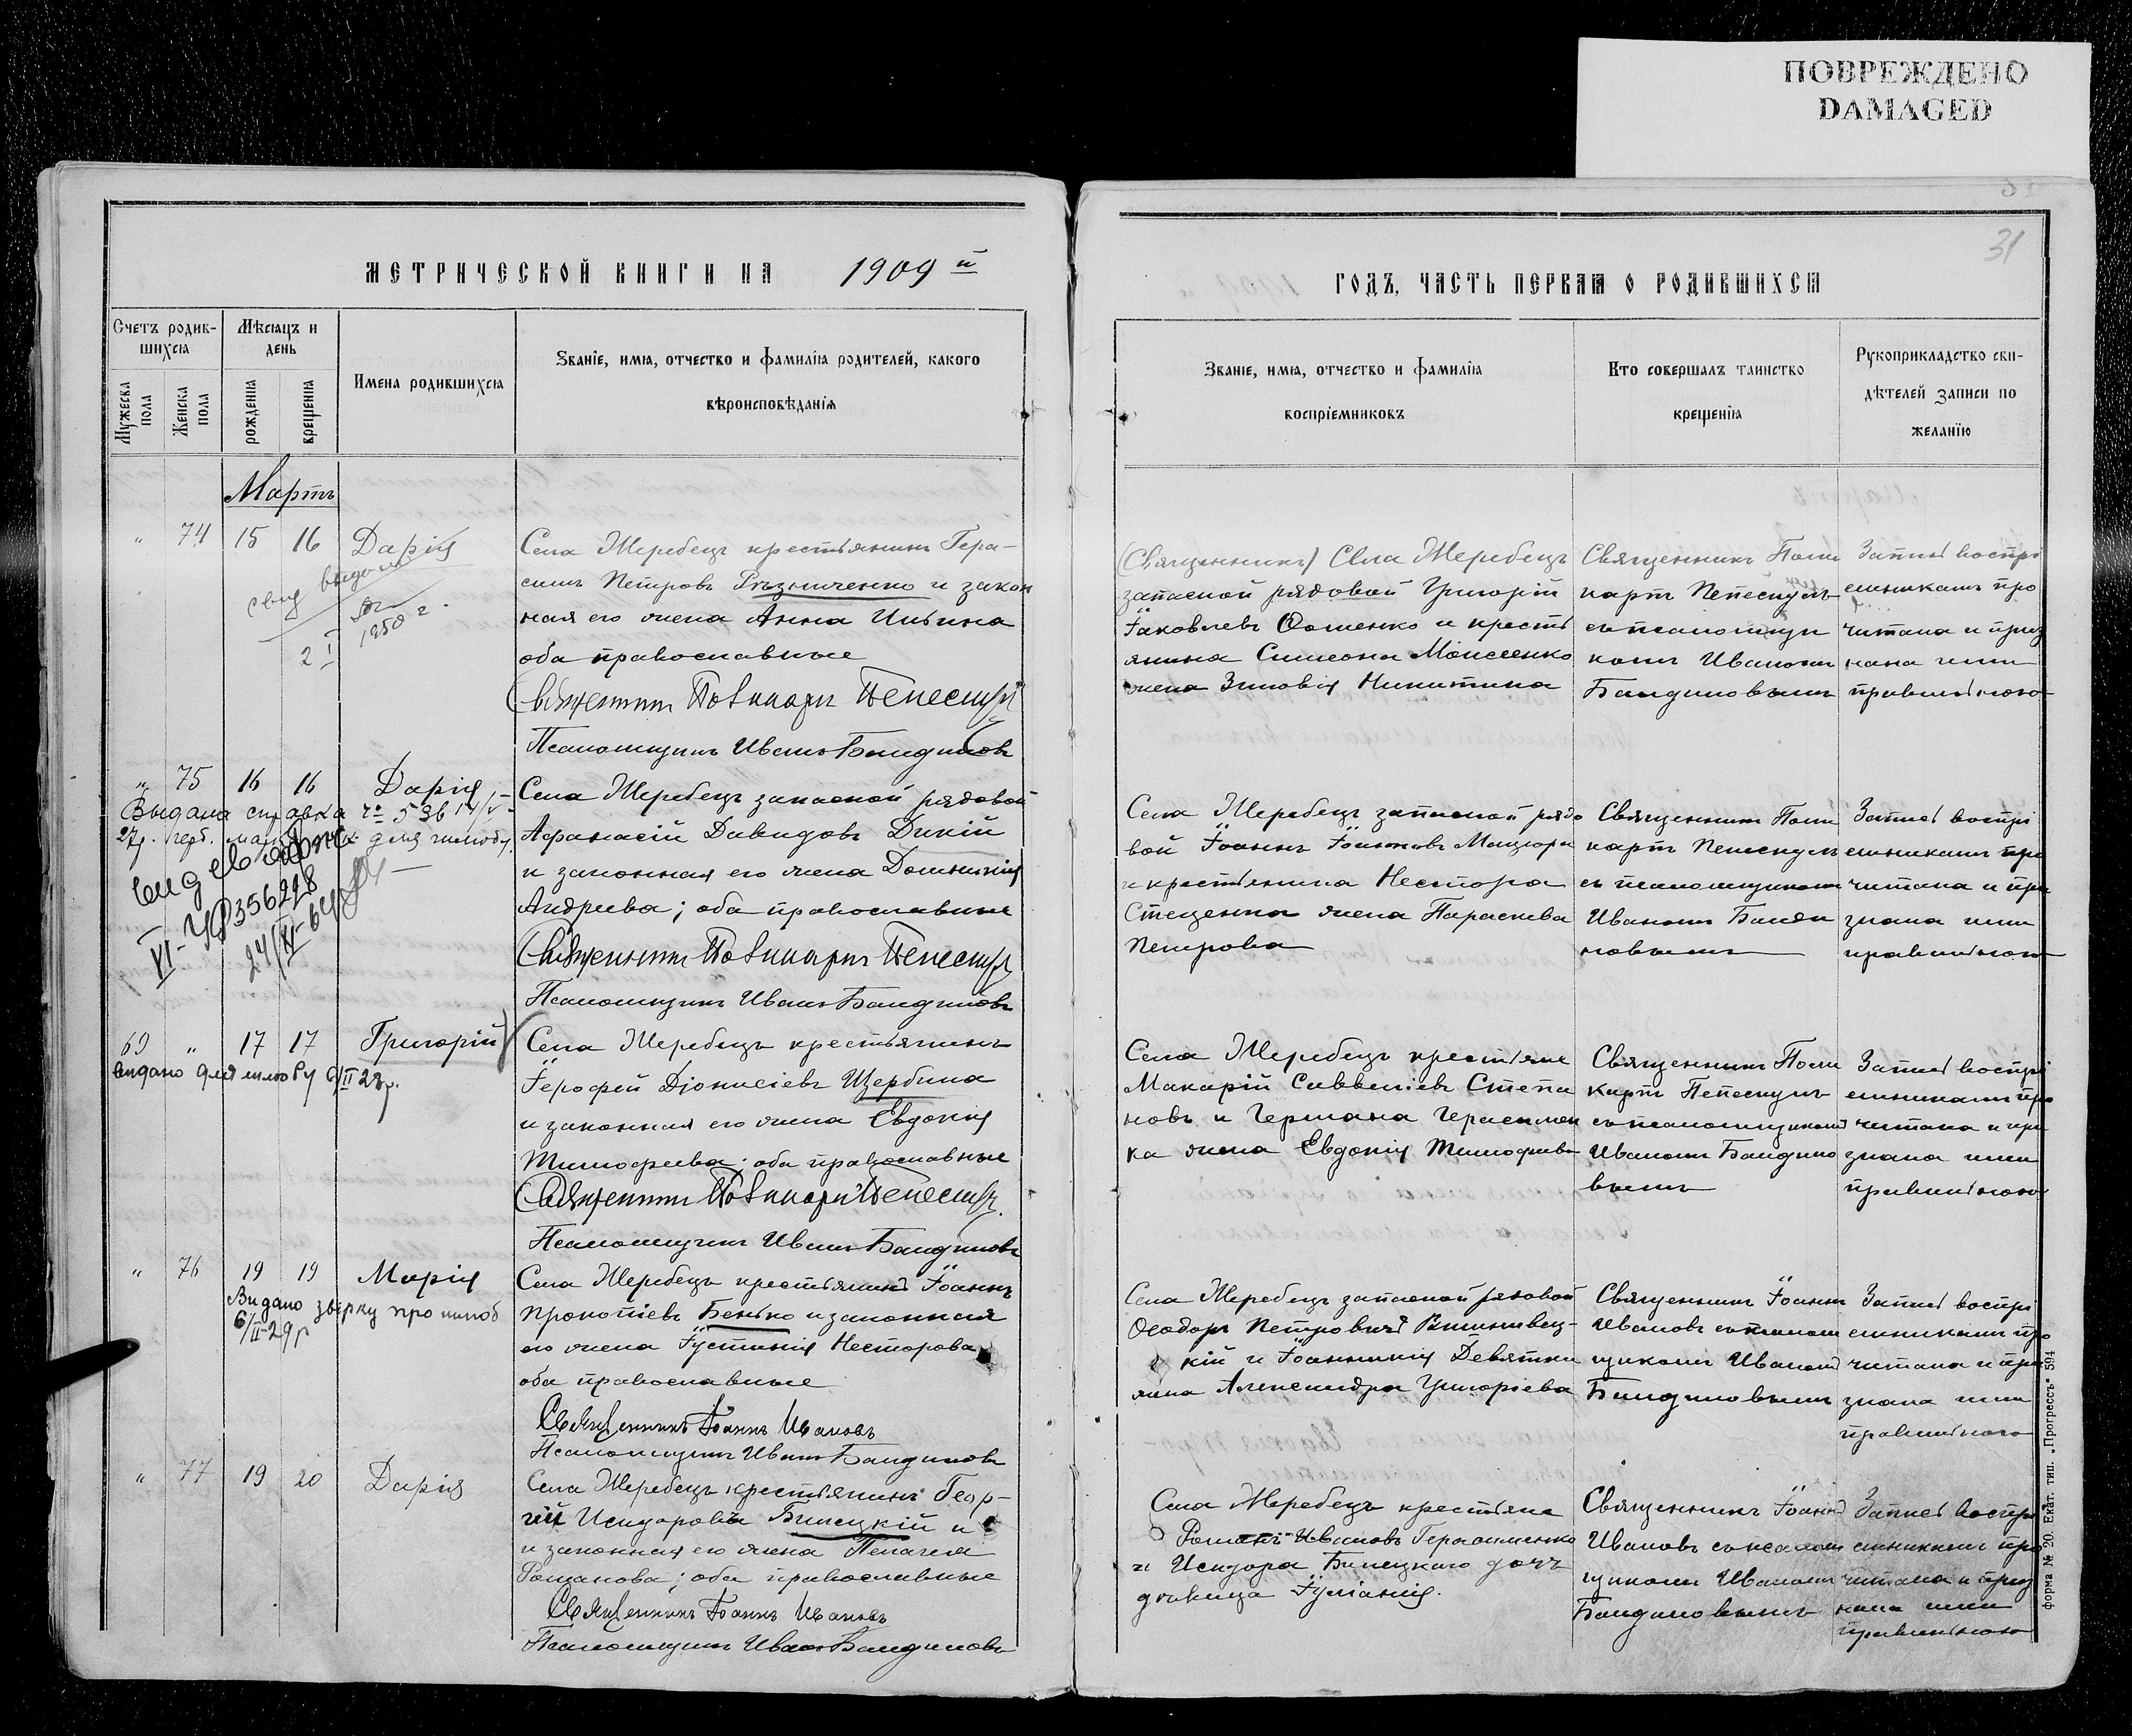 ПОВРЕЖДЕНО
DAMAGED
31
МЕТРИЧЕСКОЙ КНИГИ НА 1909 й
ГОДЪ, ЧАСТЬ ПЕРВАЯ О РОДИВШИХСЯ
Счетъ родив-
шихся
Мужеска пола
Женска пола
Мѣсяцъ и
день
рожденія
крещенія
Имена родившихся
Званіе, имя, отчество и фамилія родителей, какого
вѣроисповѣданія
Званіе, имя, отчество и фамилія
воспріемниковъ
Кто совершалъ таинство
крещенія
Рукоприкладство сви-
дѣтелей записи по
желанію
Мартъ
" 74 15 16 Дарія
свид выдано
1950 г.
2 I
Села Жеребецъ крестьянинъ Гера-
симъ Петровъ Рѣзниченко и закон
ная его жена Анна Ильина
оба православные
Священникъ Поликарпъ Пепескулъ
Псаломщикъ Иванъ Бандиновъ
(Священникъ) Села Жеребецъ
запасной рядовой Григорій
Іаковлевъ Ѳоменко и кресть
янина Симеона Моисеенко
жена Зиновія Никитина
Священникъ Поли
карпъ Пепескулъ
съ псаломщи
комъ Иваномъ
Бандиновымъ
Запись воспрі
емникамъ про
читана и приз
нана ими
правильною
" 75 16 16 Дарія
Выдана справка № 536
27 г. герб. марк для шлюбу
свид
VI-УР 356228
24/XI-64
Села Жеребецъ запасной рядовой
Афанасій Давидовъ Дикій
и законная его жена Домникія
Андреева; оба православные
Священникъ Поликарпъ Пепескулъ
Псаломщикъ Иванъ Бандиновъ
Села Жеребецъ запасной рядо
вой Іоаннъ Іоанновъ
и крестьянина Нестора
Стеценка жена Параскева
Петрова
Священникъ Поли
карпъ Пепескулъ
съ псаломщикомъ
Иваномъ Банди
новымъ
Запись воспрі
емникамъ про
читана и при
знана ими
правильною
69 " 17 17 Григорій
видано для шлюбу 9/II 28 р.
Села Жеребецъ крестьянинъ
Іерофей Діонисіевъ Щербина
и законная его жена Евдокія
Тимофеева; оба православные
Священникъ Поликарпъ Пепескулъ
Псаломщикъ Иванъ Бандиновъ
Села Жеребецъ крестьяне
Макарій Савветіевъ Степа
новъ и Германа Герасимен
ка жена Евдокія Тимофеева
Священникъ Поли
карпъ Пепескулъ
съ псаломщикомъ
Иваномъ Бандино
вымъ
Запись воспрі
емникамъ про
читана и при
знана ими
правильною
" 76 19 19 Марія
Видано звірку про шлюб
6/II-29 р
Села Жеребецъ крестьянинъ Іоаннъ
Прокопіевъ Бенько и законная
его жена Іустинія Несторова
оба православные
Священникъ Іоаннъ Ивановъ
Псаломщикъ Иванъ Бандиновъ
Села Жеребецъ запасной рядовой
Ѳеодоръ Петровичъ Вишнивец-
кій и Іоанникія Девятки
жена Александра Григоріева
Священникъ Іоаннъ
Ивановъ съ псалом
щикомъ Иваномъ
Бандиновымъ
Запись воспрі
емникамъ про
читана и при
знана ими
правильною
" 77 19 20 Дарія
Села Жеребецъ крестьянинъ Геор-
гій Исидоровъ Билецкій и
и законная его жена Пелагея
Романова; оба православные
Священникъ Іоаннъ Ивановъ
Псаломщикъ Иванъ Бандиновъ
Села Жеребецъ крестьяне
Романъ Ивановъ Герасименко
и Исидора Билецкаго дочь
дѣвица Іуліанія.
Священникъ Іоаннъ
Ивановъ съ псалом
щикомъ Иваномъ
Бандиновымъ
Запись воспрі
емникамъ про
читана и приз
нана ими
правильною
Форма № 20. Екат. тип. „Прогрессъ" 594